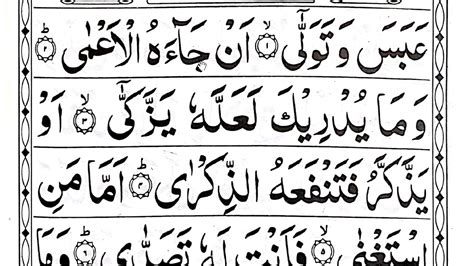 عَبَسَ وَتَوَلّٰٓىۙ ۝۱ اَنْ جَآءَهُ الْاَعْمٰىؕ ۝۲
وَمَا يُدْرِيْكَ لَعَلَّهٗ يَزَّكّٰٓىۙ ۝۳ اَوْ
يَذَّكَّرُ فَتَنْفَعَهُ الذِّكْرٰىؕ ۝۴ اَمَّا مَنِ
اسْتَغْنٰىۙ ۝۵ فَاَنْتَ لَهٗ تَصَدّٰىؕ ۝۶ وَمَا